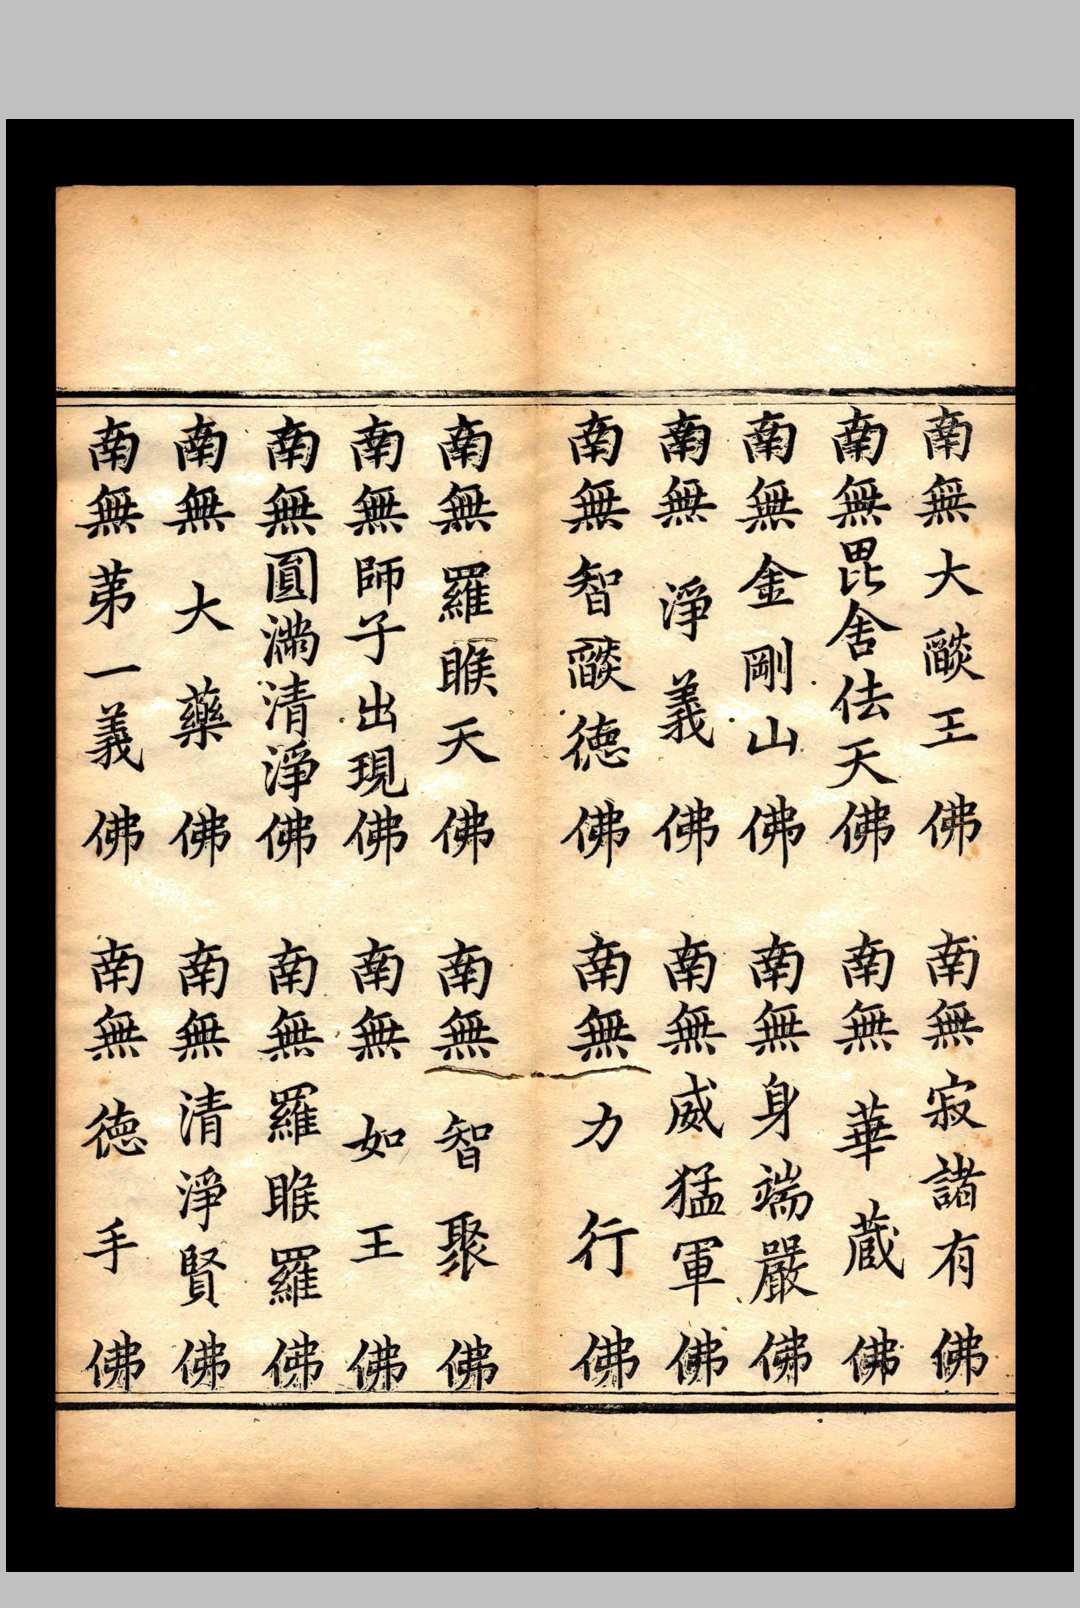 南無大燄王佛 南無寂諸有佛
南無毘舍佉天佛 南無華藏佛
南無金剛山佛 南無身端嚴佛
南無淨義佛 南無威猛軍佛
南無智燄德佛 南無力行佛
南無羅睺天佛 南無智聚佛
南無師子出現佛 南無如王佛
南無圓滿清淨佛 南無羅睺羅佛
南無大藥佛 南無清淨賢佛
南無第一義佛 南無德手佛